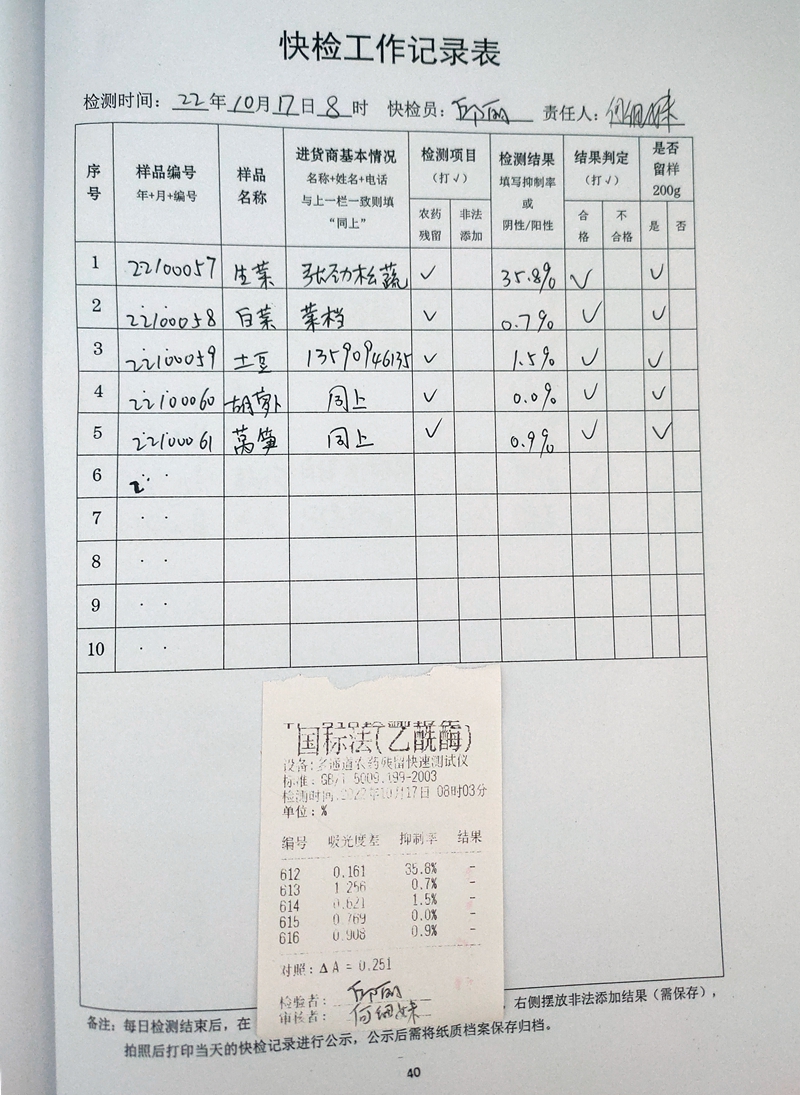 快检工作记录表
检测时间：22年10月17日8时 快检员：邱丽 责任人：何细妹
序号 样品编号 年+月+编号 样品名称 进货商基本情况 名称+姓名+电话 与上一栏一致则填“同上” 检测项目（打√） 农药残留 非法添加 检测结果 填写抑制率或阴性/阳性 结果判定（打√） 合格 不合格 是否留样200g 是 否
1 22100057 生菜 张劲松蔬 ✓ 35.8% ✓ ✓
2 22100058 白菜 菜档 ✓ 0.7% ✓ ✓
3 22100059 土豆 13590946135 ✓ 1.5% ✓ ✓
4 22100060 胡萝卜 同上 ✓ 0.0% ✓ ✓
5 22100061 莴笋 同上 ✓ 0.9% ✓ ✓
6 2
7
8
9
10
国标法(乙酰酶)
设备:多通道农药残留快速测试仪
标准：GB/T 5009.199-2003
检测时间:2022年10月17日 08时03分
单位：%
编号 吸光度差 抑制率 结果
612 0.161 35.8% -
613 1.256 0.7% -
614 0.621 1.5% -
615 0.769 0.0% -
616 0.908 0.9% -
对照：ΔA = 0.251
检验者： 邱丽
审核者： 何细妹
备注：每日检测结束后，在 右侧摆放非法添加结果（需保存），
拍照后打印当天的快检记录进行公示，公示后需将纸质档案保存归档。
40